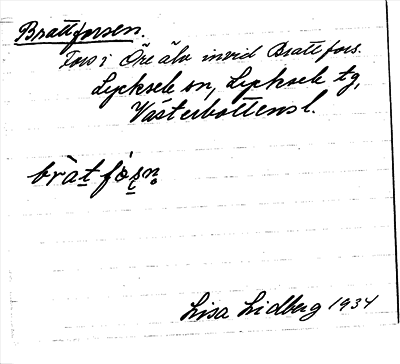 Brattforsen.
Fors i Öre älv invid Brattfors.
Lycksele sn, Lycksele tg,
Västerbottens l.
Lisa Lidberg 1934